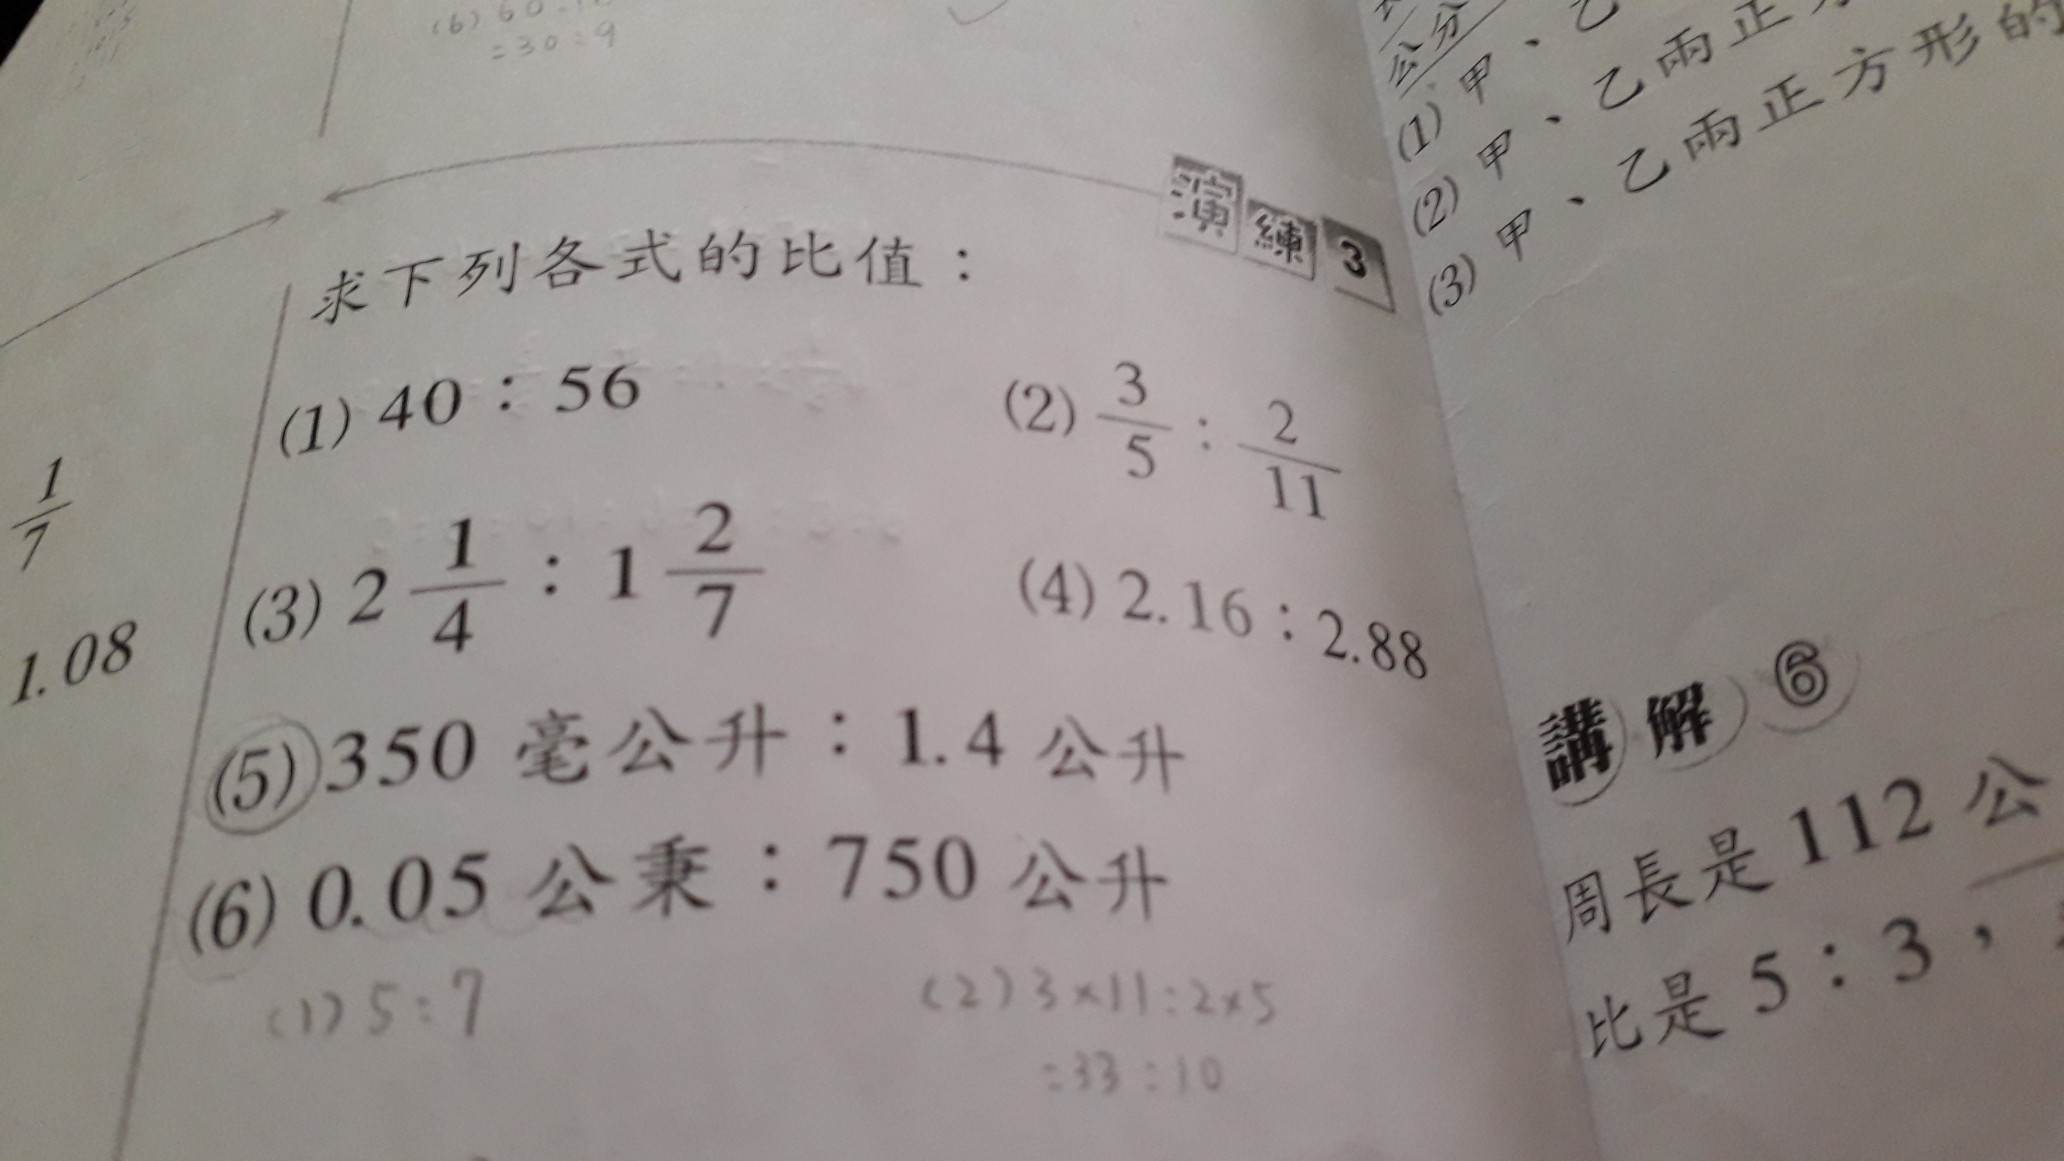 = 30 : 9
演練3
求下列各式的比值：
(1) 40：56
(2) 3/5：2/11
(3) 2 1/4：1 2/7
(4) 2.16：2.88
(5) 350 毫公升：1.4 公升
(6) 0.05 公秉：750 公升
(1) 5：7
(2) 3×11：2×5
=33：10
1/7
1.08
公分
(1) 甲、乙
(2) 甲、乙兩正方
(3) 甲、乙兩正方形的
講解 6
周長是 112 公
比是 5：3，